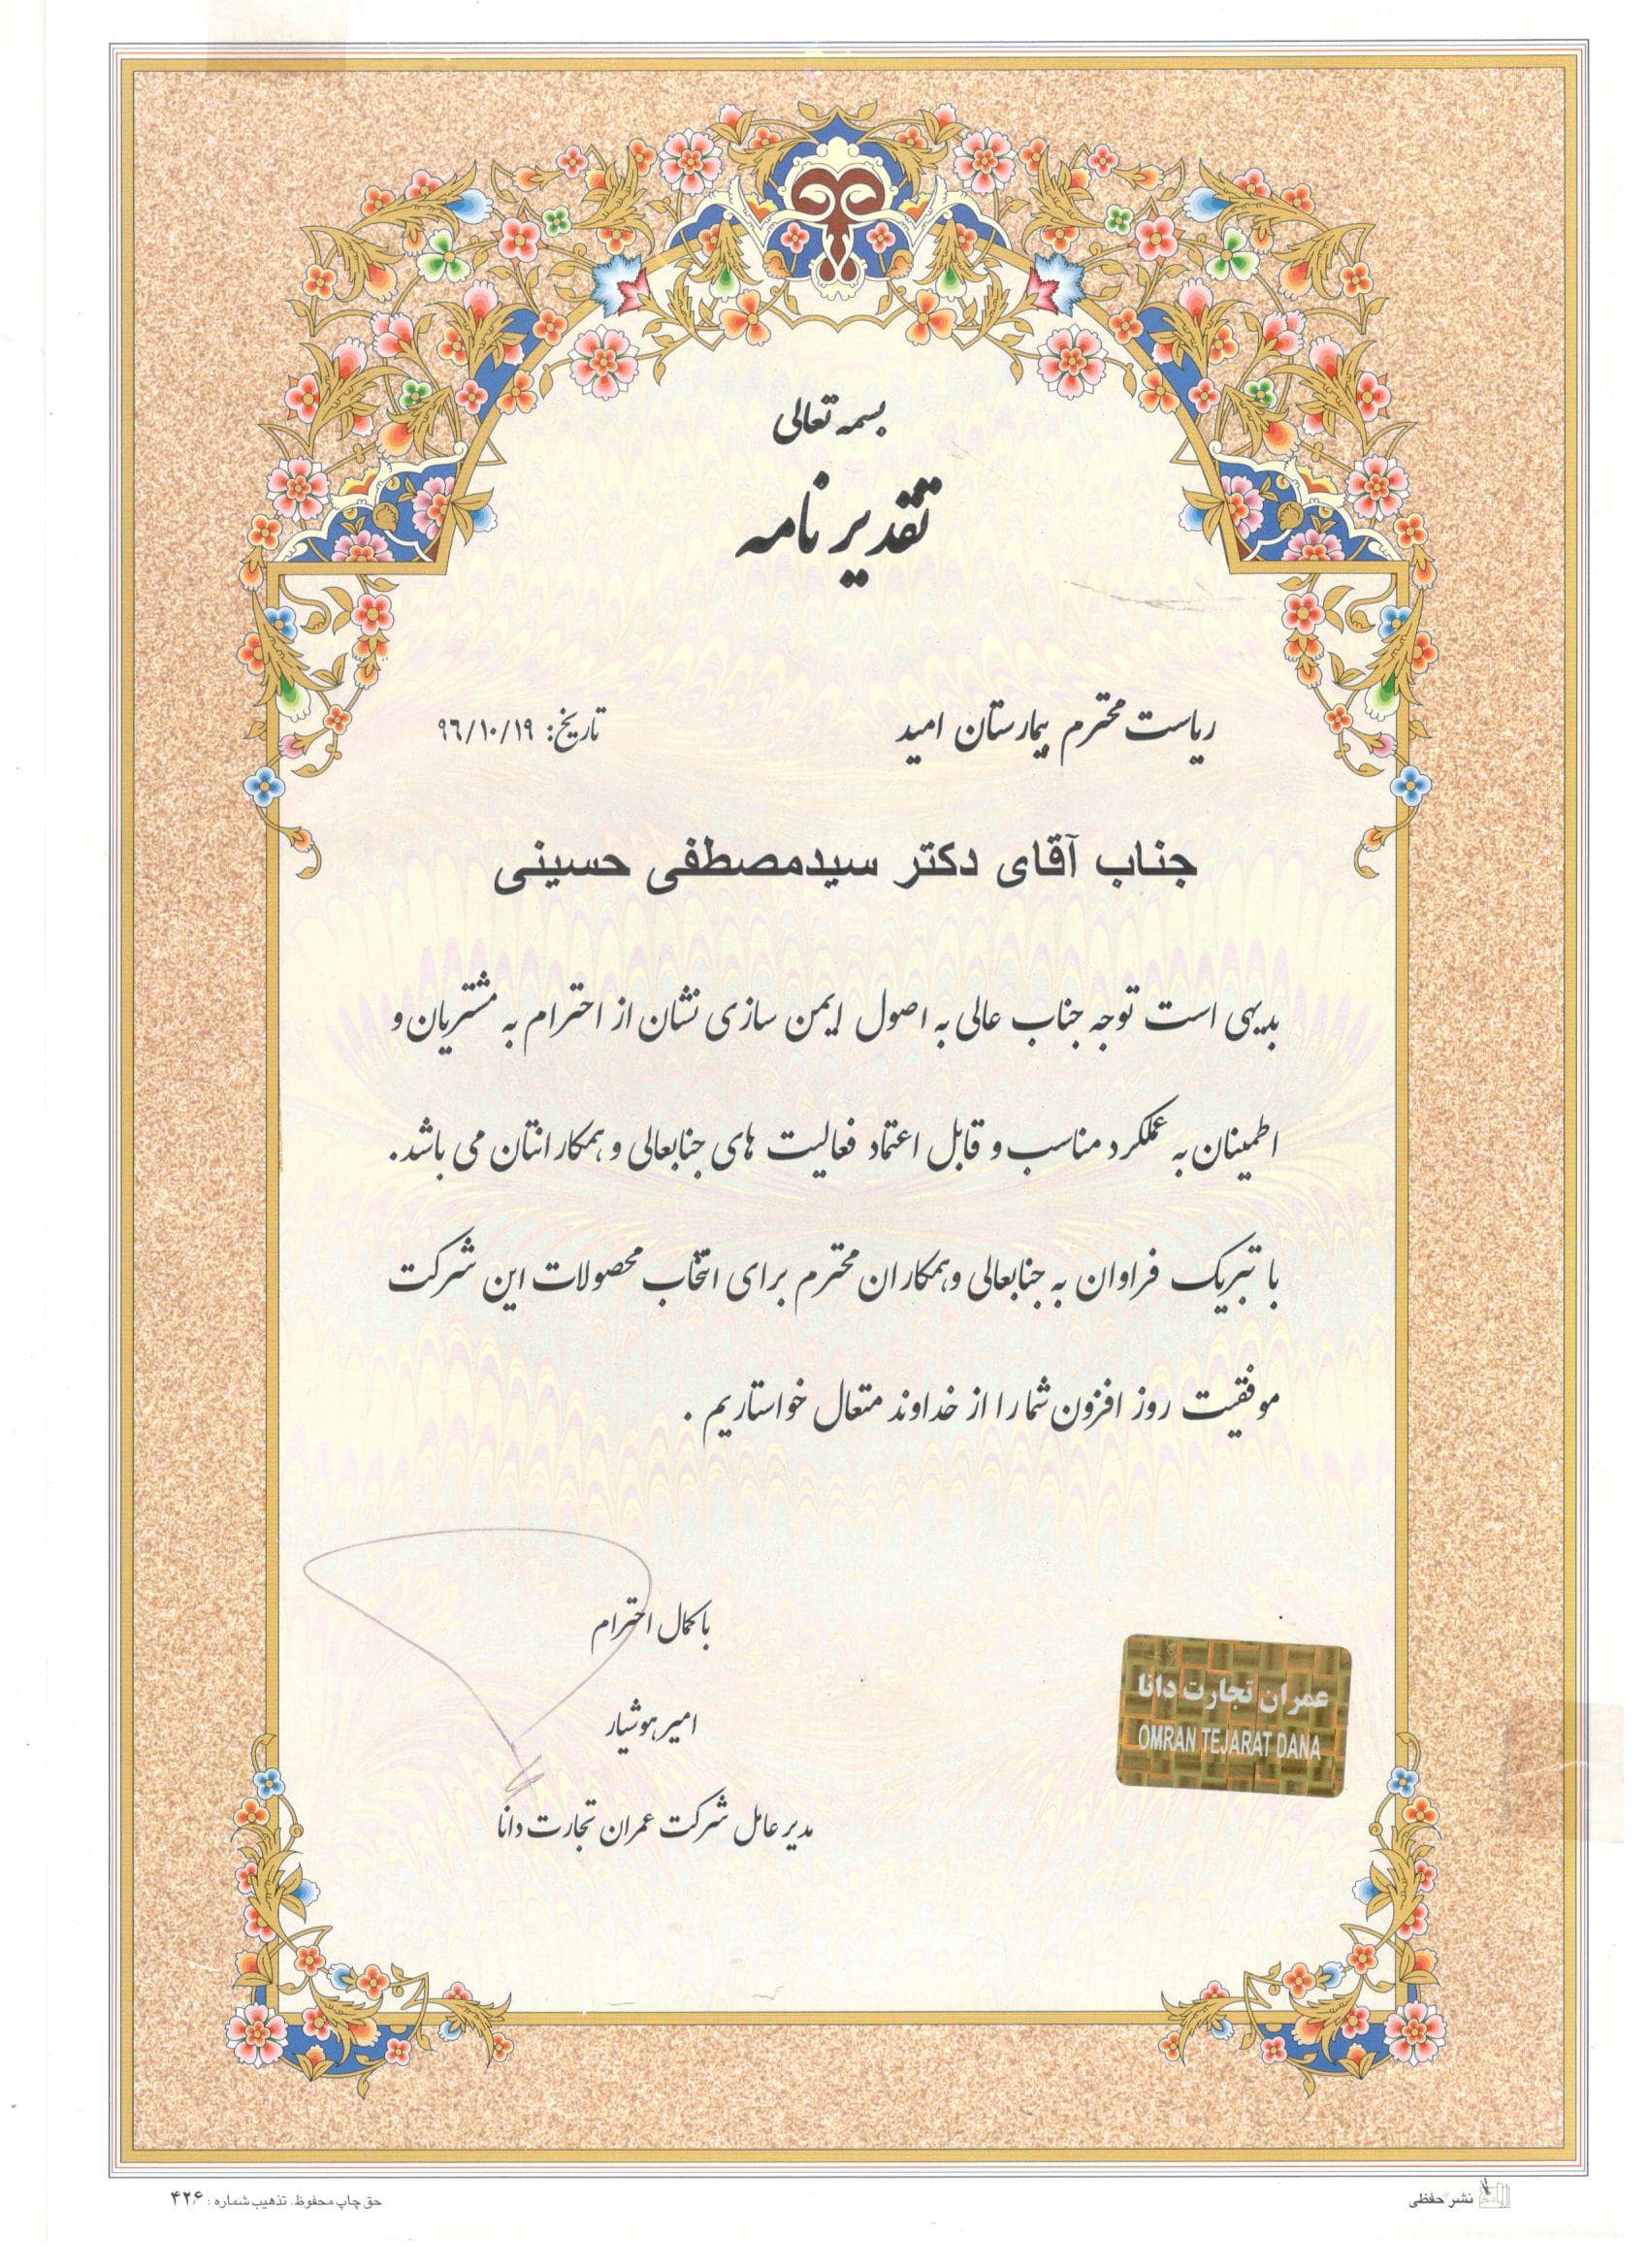 بسمه تعالی
تقدیر نامه
ریاست محترم بیمارستان امید
تاریخ: ۹۶/۱۰/۱۹
جناب آقای دکتر سیدمصطفی حسینی
بدیهی است توجه جناب عالی به اصول ایمن سازی نشان از احترام به مشتریان و
اطمینان به عملکرد مناسب و قابل اعتماد فعالیت های جنابعالی و همکارانتان می باشد.
با تبریک فراوان به جنابعالی و همکاران محترم برای انتخاب محصولات این شرکت
موفقیت روز افزون شما را از خداوند متعال خواستاریم .
با کمال احترام
امیر هوشیار
مدیر عامل شرکت عمران تجارت دانا
عمران تجارت دانا
OMRAN TEJARAT DANA
نشر حفظی
حق چاپ محفوظ. تذهیب شماره : ۴۲۶